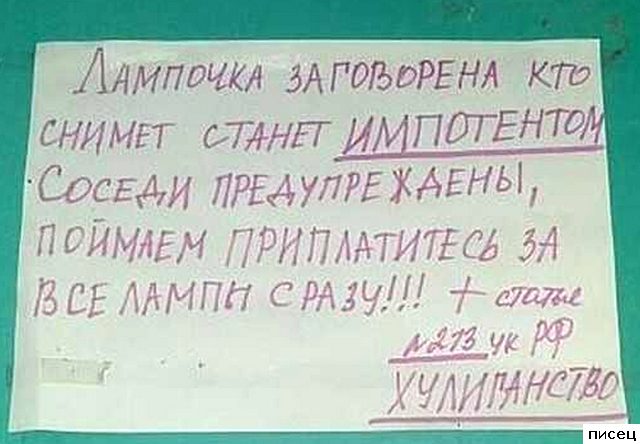 Лампочка заговорена кто
снимет станет импотентом
Соседи предупреждены,
поймаем приплатитесь за
все лампы сразу!!! + статье
№213 ук РФ
хулиганство
писец